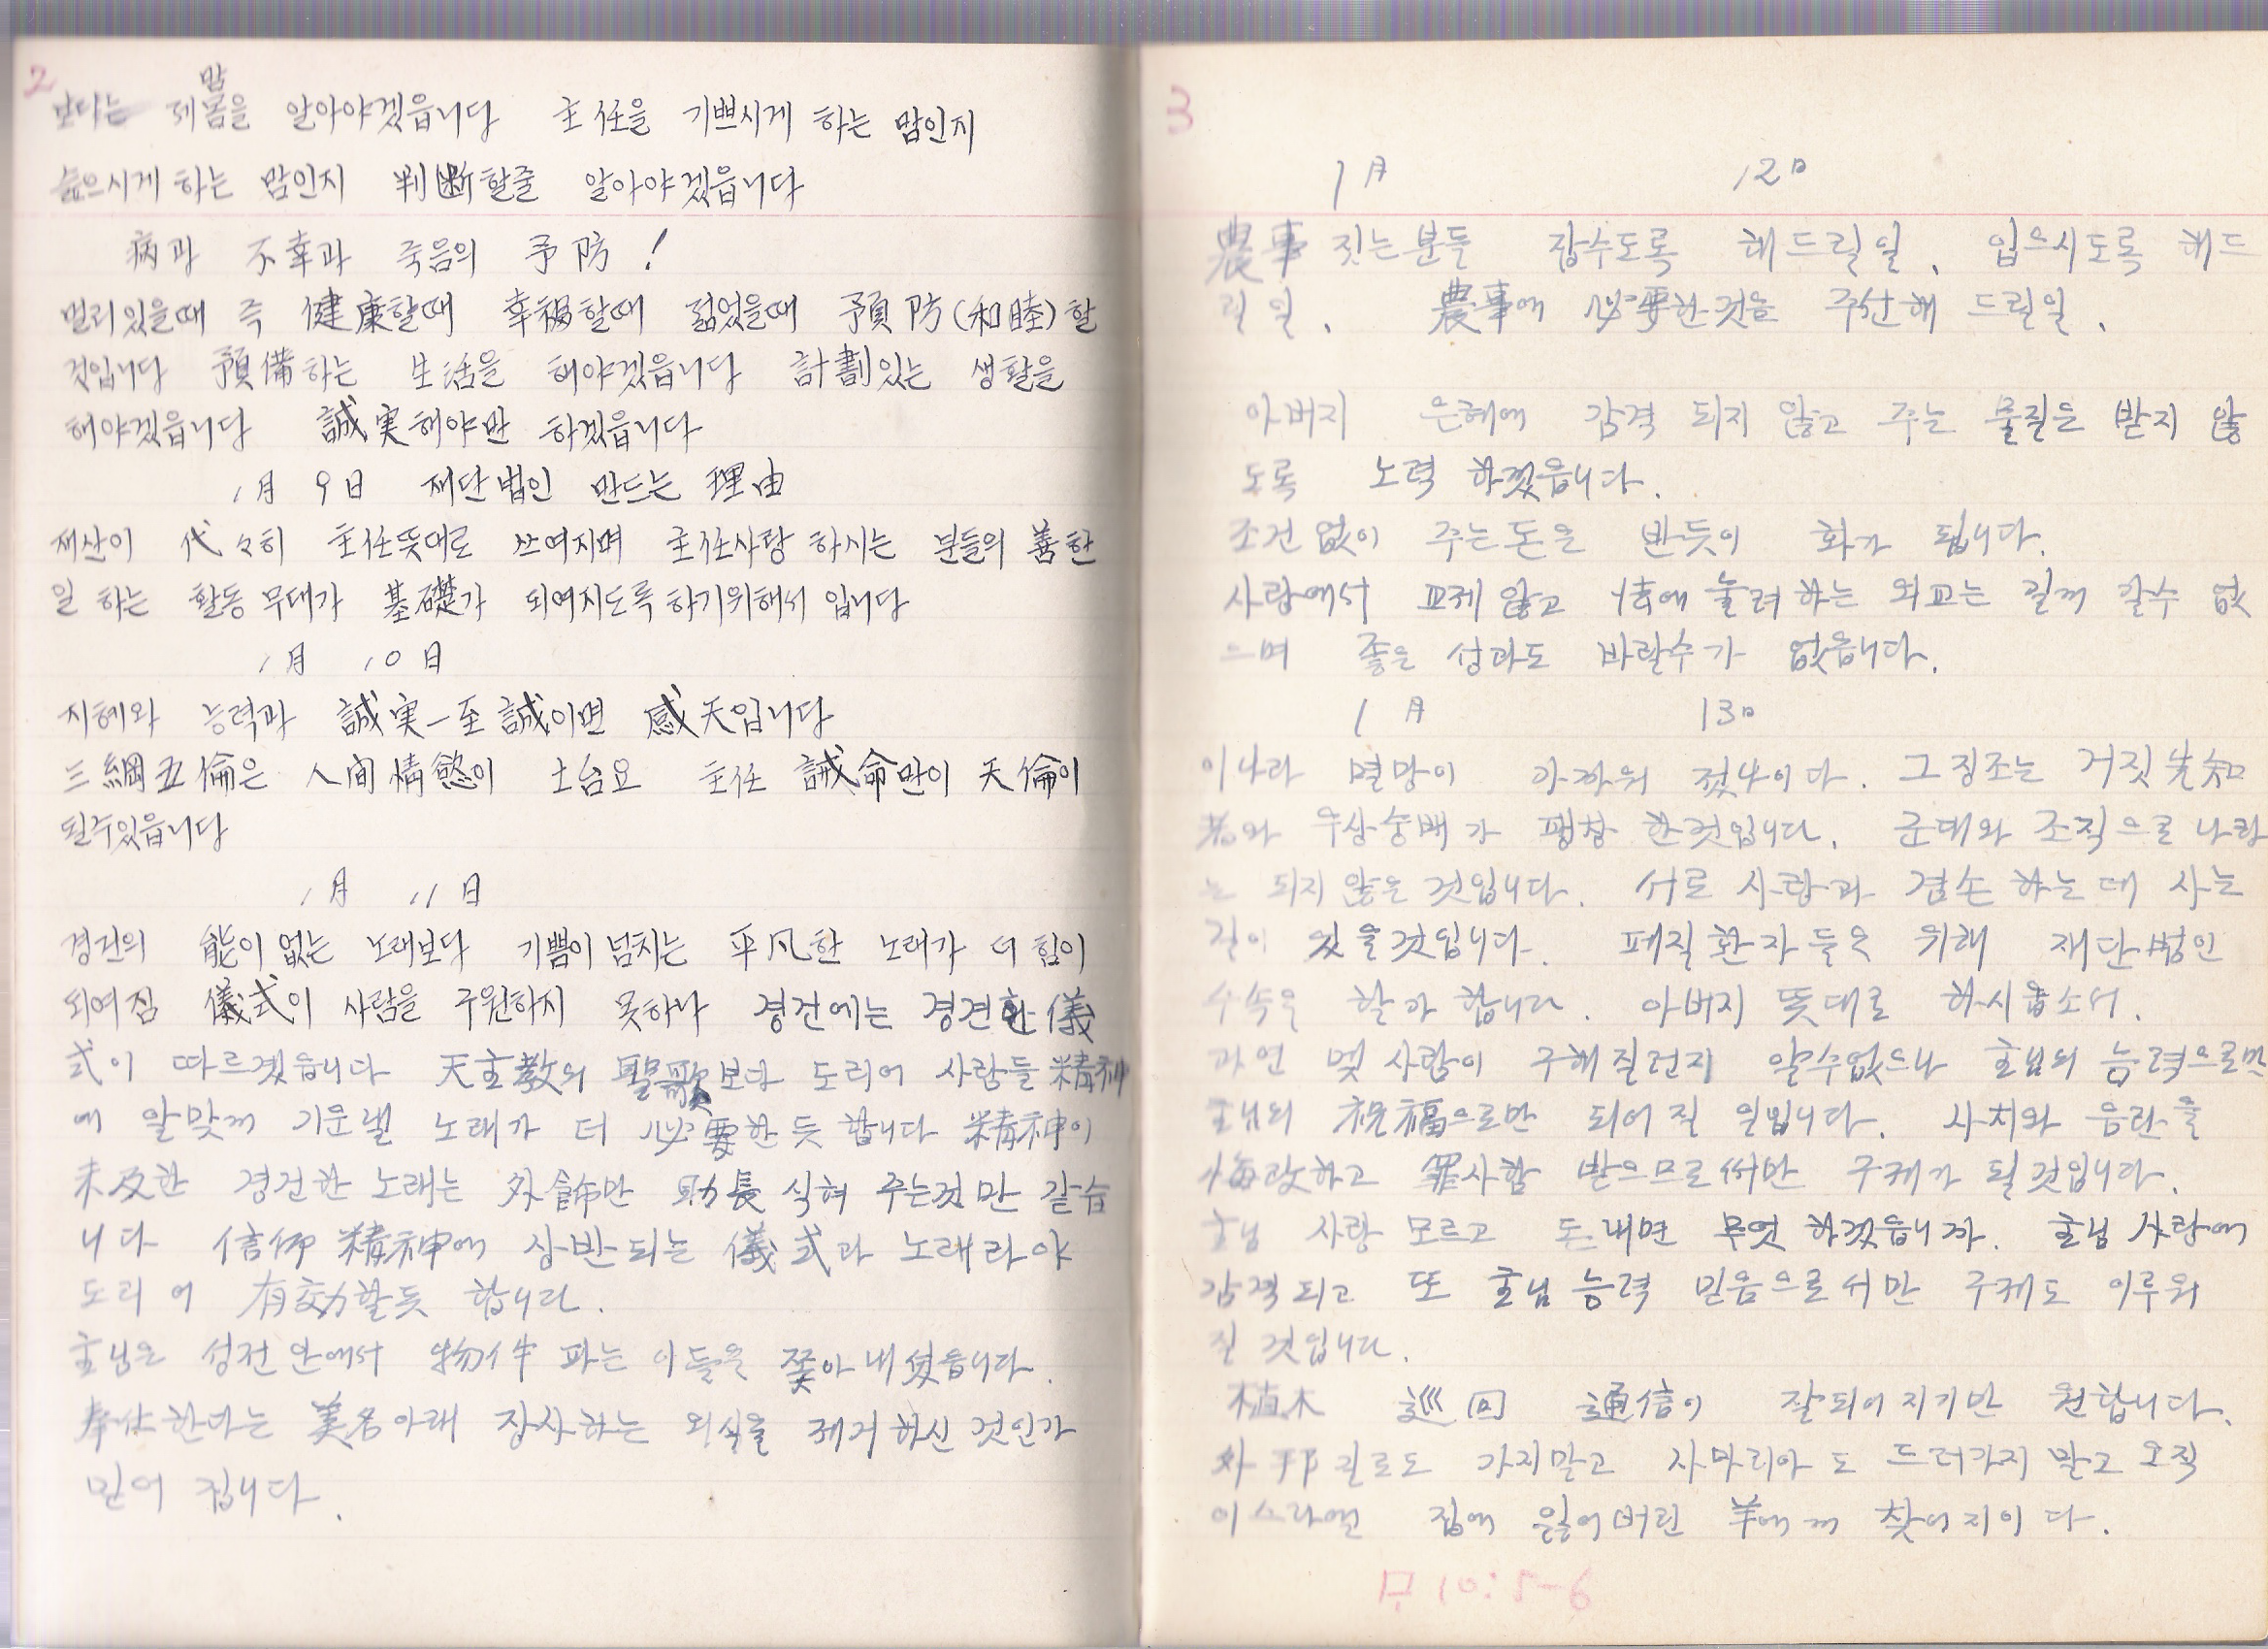 2
보다는 제몸을 알아야겠읍니다 主任을 기쁘시게 하는 맘인지
맘
슬으시게 하는 맘인지 判断할줄 알아야겠읍니다
病과 不幸과 죽음의 予防!
멀리있을때 즉 健康할때 幸福할때 젊었을때 預防(和睦)할
것입니다 預備하는 生活을 해야겠읍니다 計劃있는 생활을
해야겠읍니다 誠実해야만 하겠읍니다
1月 9日 재단법인 만드는 理由
재산이 代々히 主任뜻대로 쓰여지며 主任사랑 하시는 분들의 善한
일 하는 활동무대가 基礎가 되여지도록하기위해서 입니다
1月 10日
지혜와 능력과 誠実—至誠이면 感天입니다
三綱五倫은 人間情慾이 土台요 主任 誡命만이 天倫이
될수있읍니다
1月 11日
경건의 能이 없는 노래보다 기쁨이 넘치는 平凡한 노래가 더 힘이
되여짐 儀式이 사람을 구원하지 못하나 경건에는 경건한 儀
式이 따르겠읍니다 天主教의 聖歌보다 도리어 사람들 精神
에 알맞게 기운낼 노래가 더 必要한듯 합니다 精神이
未及한 경건한 노래는 外飾만 助長 식혀 주는것만 같습
니다 信仰精神에 상반되는 儀式과 노래라야
도리어 有効할듯 합니다.
主님은 성전안에서 物件 파는 이들을 쫓아내셨읍니다.
奉仕한다는 美名아래 장사하는 외식을 제거하신 것인가
믿어 집니다.
3
1月 12日
農事 짓는분들 잡수도록 해드릴일, 입으시도록 해드
릴일, 農事에 必要한것을 주선해 드릴일.
아버지 은혜에 감격 되지 않고 주는 물질은 받지 않
도록 노력 하겠읍니다.
조건없이 주는돈은 반듯이 화가 됩니다.
사랑에서 교제않고 情에 눌려하는 외교는 길게 갈수 없
으며 좋은 성과도 바랄수가 없읍니다.
1月 13日
이나라 멸망이 가까워 젔나이다. 그 징조는 거짓先知
者와 우상숭배가 팽창 한것입니다. 군대와 조직으로 나라
는 되지 않은 것입니다. 서로 사랑과 겸손 하는데 사는
길이 있을것입니다. 폐직환자들은 위해 재단법인
수속을 할가 합니다. 아버지 뜻대로 하시옵소서.
과연 몇 사람이 구해질런지 알수없으나 主님의 능력으로만
主님의 祝福으로만 되어질 일입니다. 사치와 음란을
悔改하고 罪사함 받으므로써만 구제가 될것입니다.
主님 사랑 모르고 돈내면 무엇 하겠읍니까. 主님 사랑에
감격되고 또 主님 능력 믿음으로서만 구제도 이루워
질 것입니다.
植木 巡回 通信이 잘되어지기만 원합니다.
外邦길로도 가지말고 사마리아도 드러가지 말고 오직
이스라엘 집에 잃어버린 羊에게 찾어지이다.
마 10:5-6